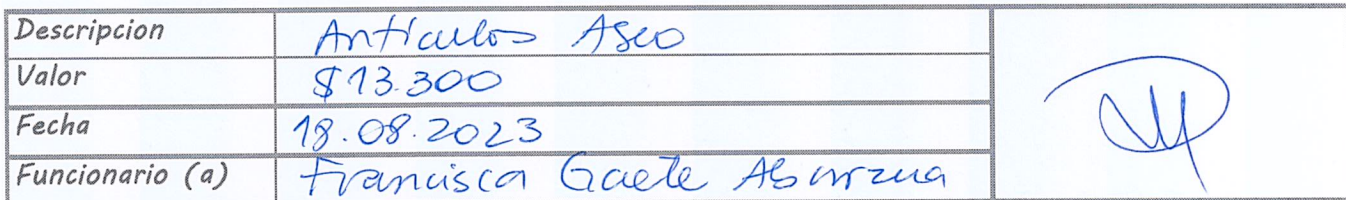 Descripcion Artículos Aseo
Valor $13.300
Fecha 18.08.2023
Funcionario (a) Francisca Gaete Aburzua